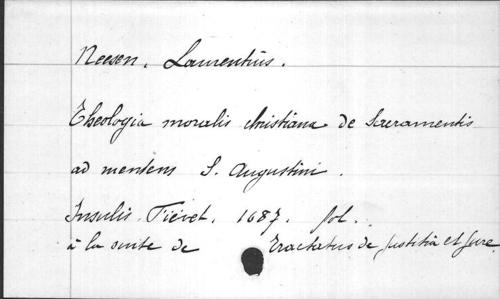 Neesen, Laurentius.
Theologia moralis christiana de Sacramentis
ad mentem S. Augustini.
Insulis. Fievet. 1687. fol.
à la suite de Tractatus de justitia et jure